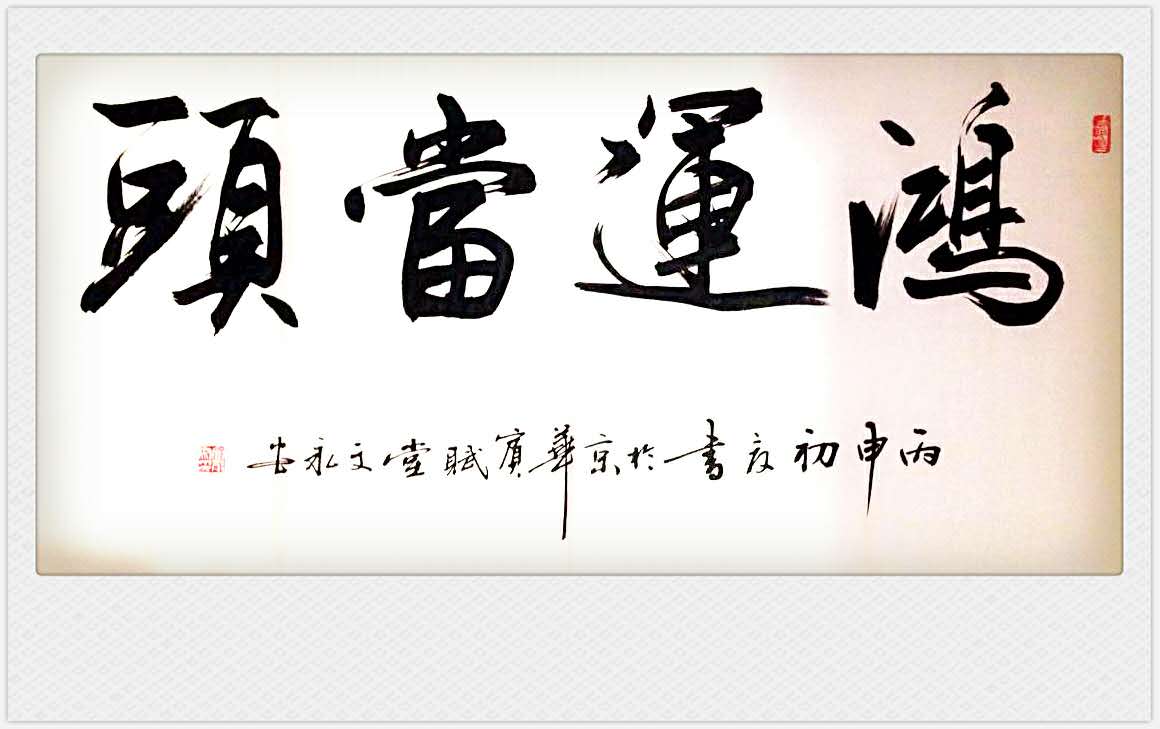 鴻運當頭
丙申初夏書於京華賓賦堂文永